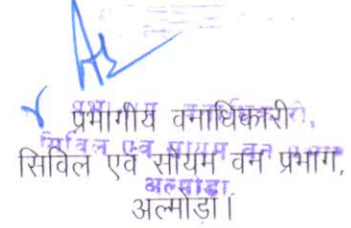 प्रभागीय वनाधिकारी
सिविल एवं सोयम वन प्रभाग,
अल्मोड़ा।